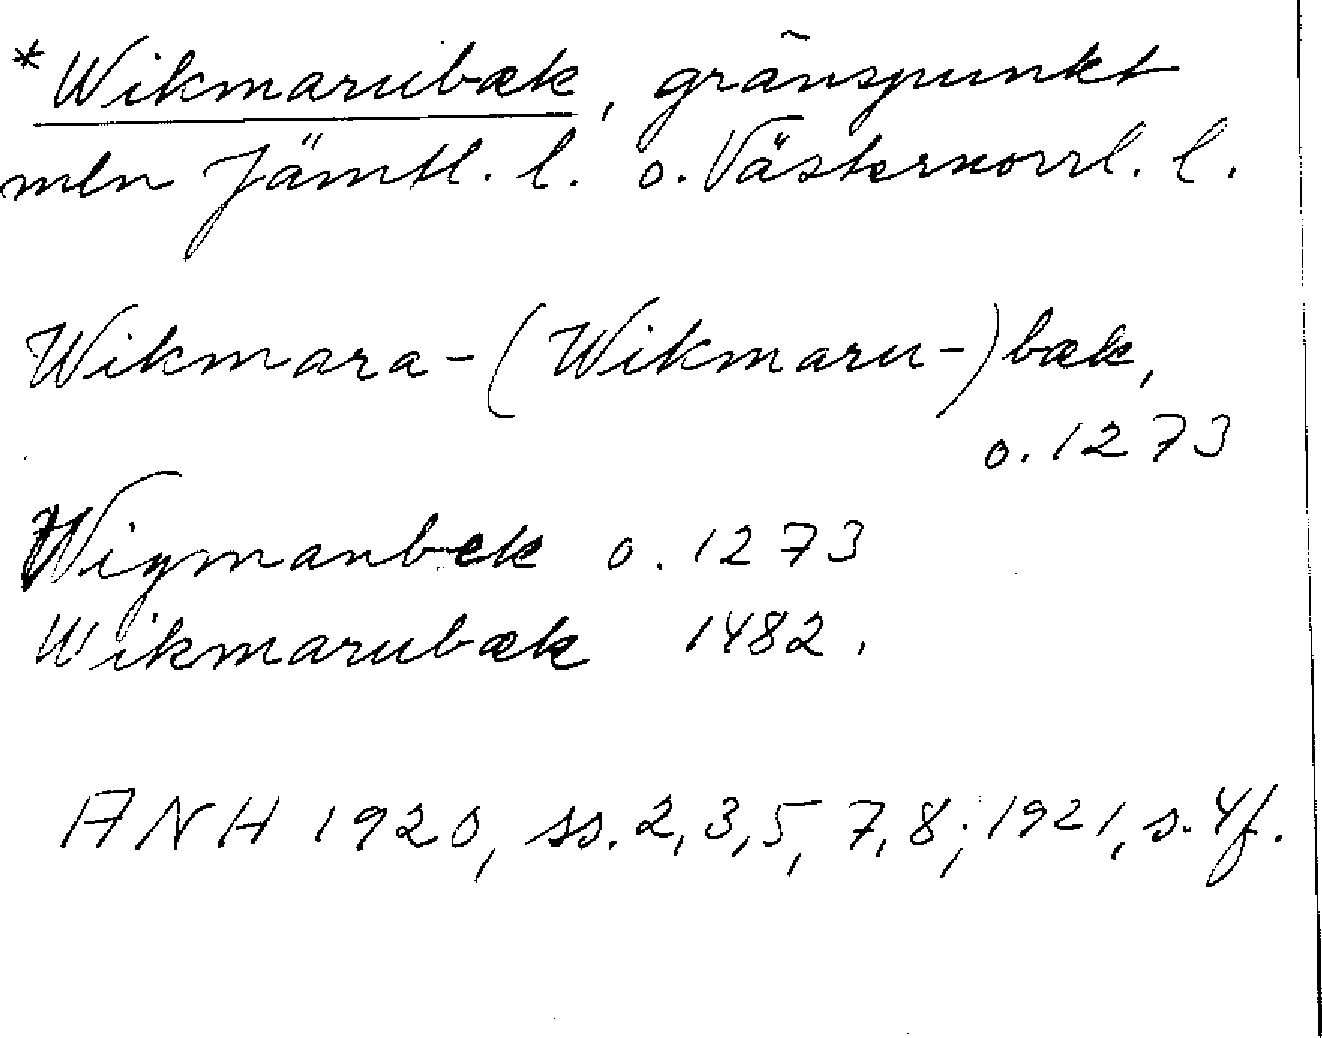 *Wikmarubæk, gränspunkt
mln Jämtl. l. o. Västernorrl. l.
Wikmara-(Wikmaru-)bæk,
o. 1273
Wigmanbek o. 1273
Wikmarubæk 1482.
ANH 1920, ss. 2, 3, 5, 7, 8; 1921, s. 4f.